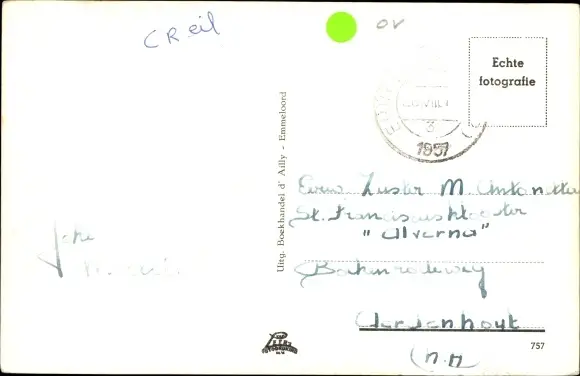 CReil
ov
Echte
fotografie
VIII
3
1957
Uitg. Boekhandel d' Ailly - Emmeloord
Eerw. Zuster M. Antonetta
St. Franciscusklooster
"Alverna"
Bachenradeweg
Aerdenhout
(N.H)
Joke
757